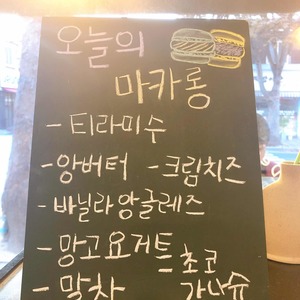 오늘의
마카롱
- 티라미수
- 앙버터 - 크림치즈
- 바닐라앙글레즈
- 망고요거트
- 초코
- 말차 가나슈